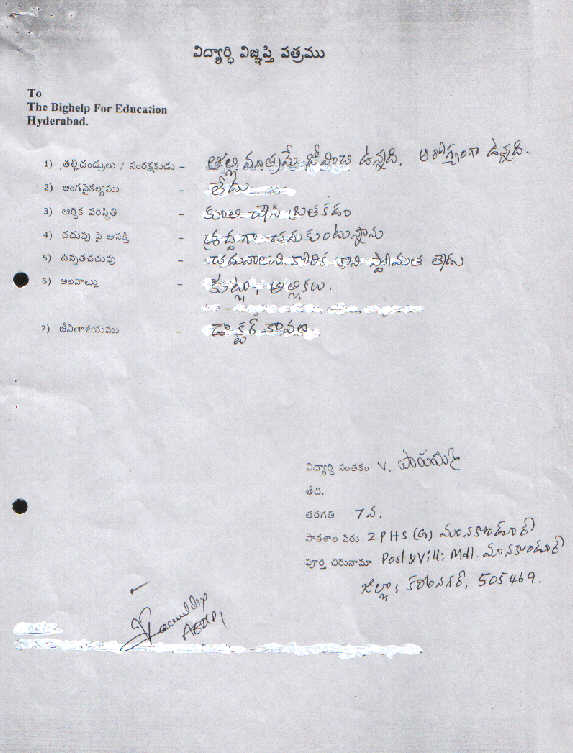 విద్యార్థి విజ్ఞప్తి పత్రము
To
The Bighelp For Education
Hyderabad.
1) తల్లిదండ్రులు / సంరక్షకుడు - తల్లి మాత్రమే తోడుండి ఉన్నది. ఆరోగ్యంగా ఉన్నది.
2) అంగవైకల్యము - లేదు
3) ఆర్థిక పరిస్థితి - కూలి చేసి బ్రతకడం
4) చదువు పై ఆసక్తి - శ్రద్ధగా చదువుకుంటున్నాను
5) ఉన్నతచదువు - చదువాలని కోరిక కాని స్థోమత లేదు
6) అలవాట్లు - కుట్లు, అల్లికలు.
7) జీవితాశయము - డాక్టర్ కావాలి
విద్యార్థి సంతకం V.
తేది.
తరగతి 7వ.
పాఠశాల పేరు ZPHS (G) మానకొండూర్
పూర్తి చిరునామా Post & Vill: Mdl. మానకొండూర్
జిల్లా, కరీంనగర్, 505469.